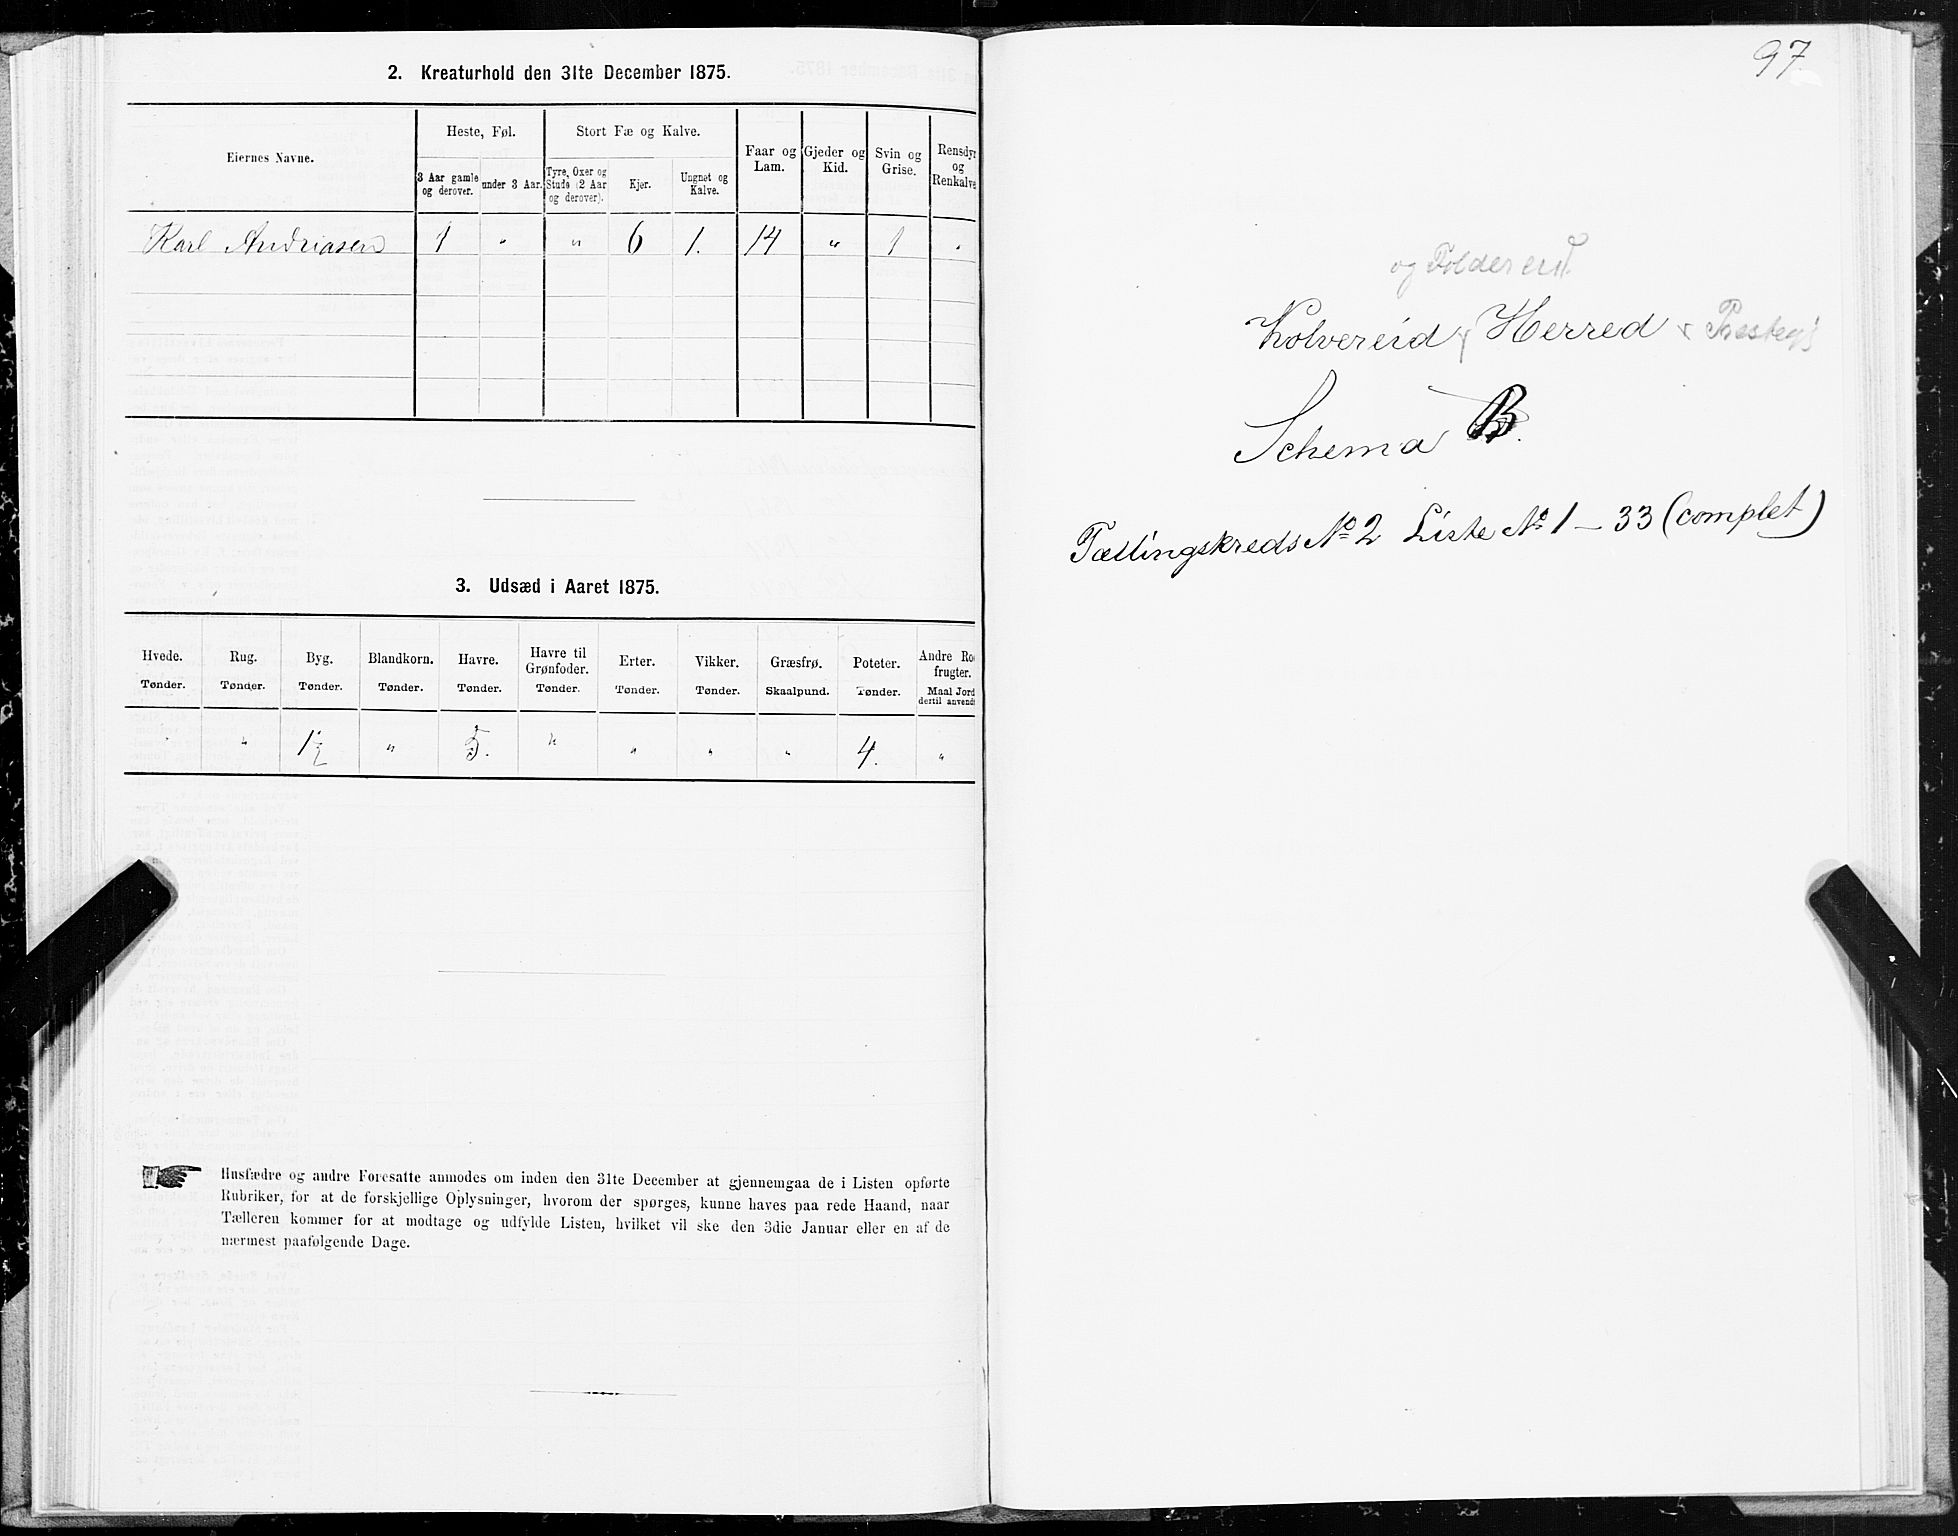 2. Kreaturhold den 31te December 1875.
Eiernes Navne.
Heste, Føl.
Stort Fæ og Kalve.
3 Aar gamle og derover.
under 3 Aar.
Tyre, Oxer og Stude (2 Aar og derover).
Kjør.
Ungnøt og Kalve.
Faar og Lam.
Gjeder og Kid.
Svin og Grise.
Rensdyr og Renkalve
Karl Andriasen 1 " " 6 1. 14 " 1 "
3. Udsæd i Aaret 1875.
Hvede. Rug. Byg. Blandkorn. Havre. Havre til Grønfoder. Erter. Vikker. Græsfrø. Poteter. Andre Ro frugter.
Tønder. Tønder. Tønder. Tønder. Tønder. Tønder. Tønder. Tønder. Skaalpund. Tønder. Maal Jord dertil anvendt
" " 1½ " 5. " " " " 4. "
Husfædre og andre Foresatte anmodes om inden den 31te December at gjennemgaa de i Listen opførte
Rubriker, for at de forskjellige Oplysninger, hvorom der spørges, kunne haves paa rede Haand, naar
Tælleren kommer for at modtage og udfylde Listen, hvilket vil ske den 3die Januar eller en af de
nærmest paafølgende Dage.
97
og Foldereid
Kolvereid Herred Præstegj
Schema B.
Tællingskreds No 2 Liste No 1 – 33 (complet)